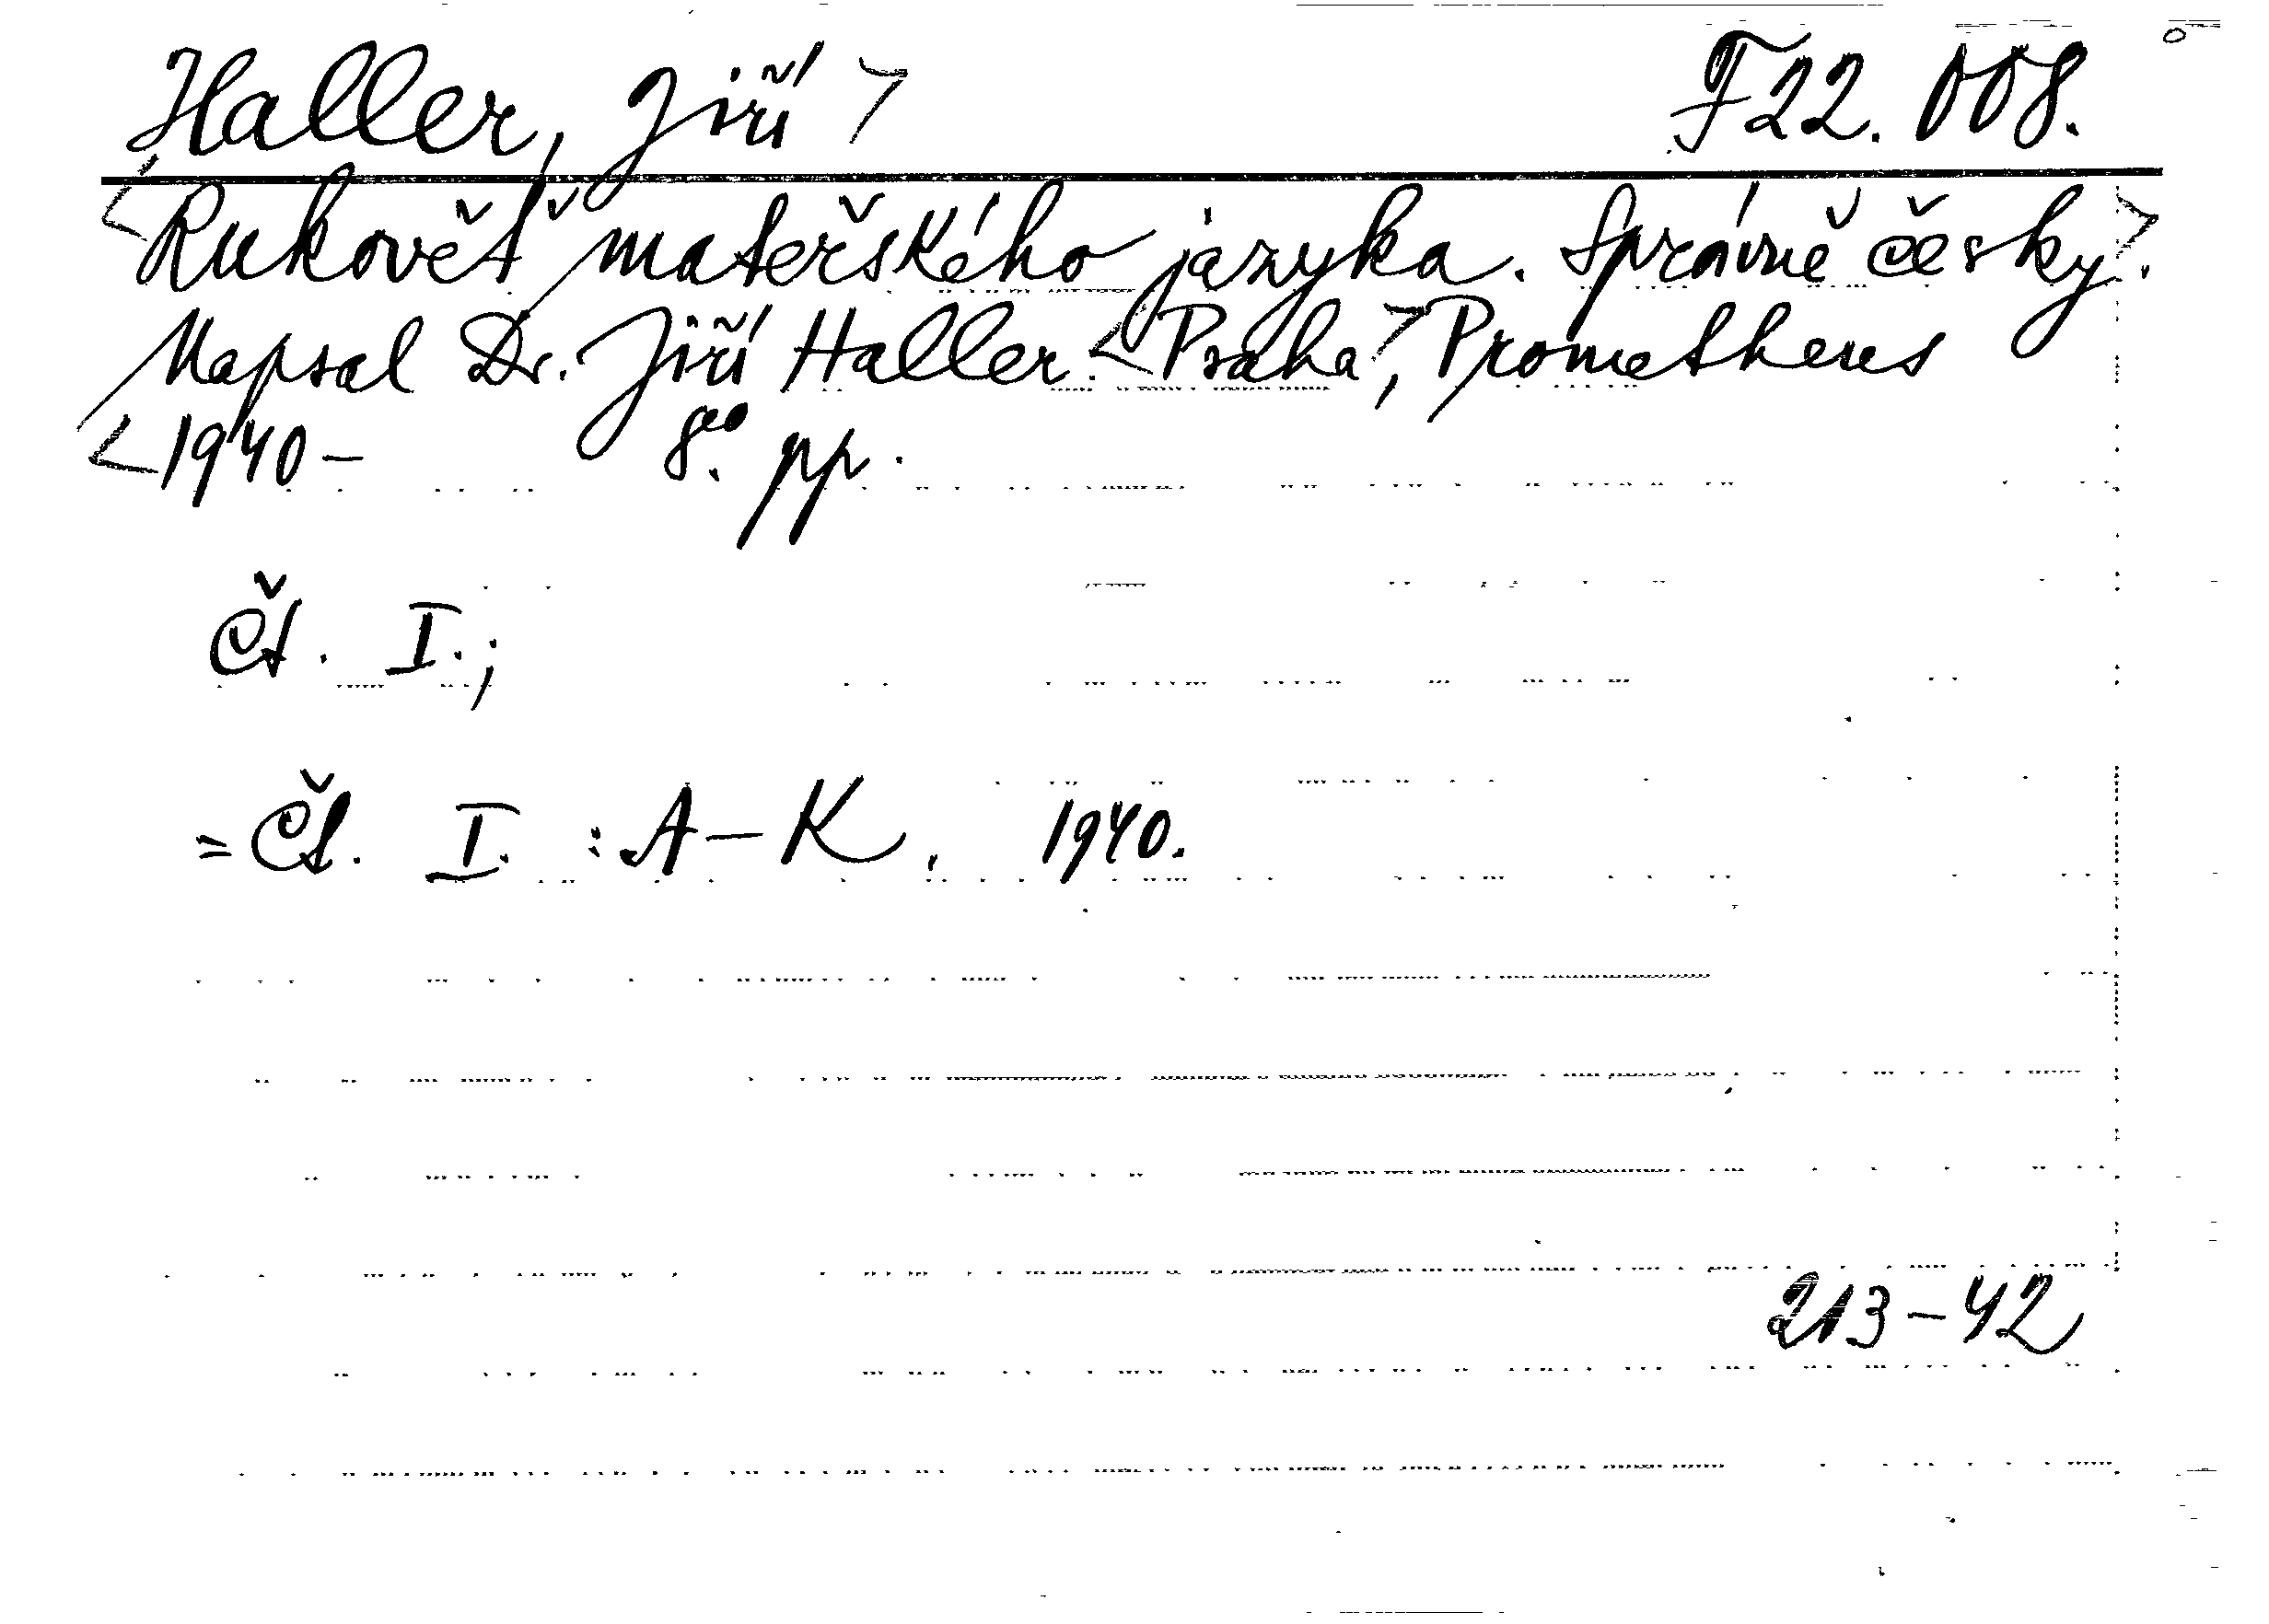 <Haller, Jiří> F 22.008.
<Rukověť mateřského jazyka. Správně česky>.
Napsal Dr. Jiří Haller. <Praha>, Prometheus
<1940- 8°. pp.
Čt. I.;
= Čt. I. : A-K, 1940.
213-42